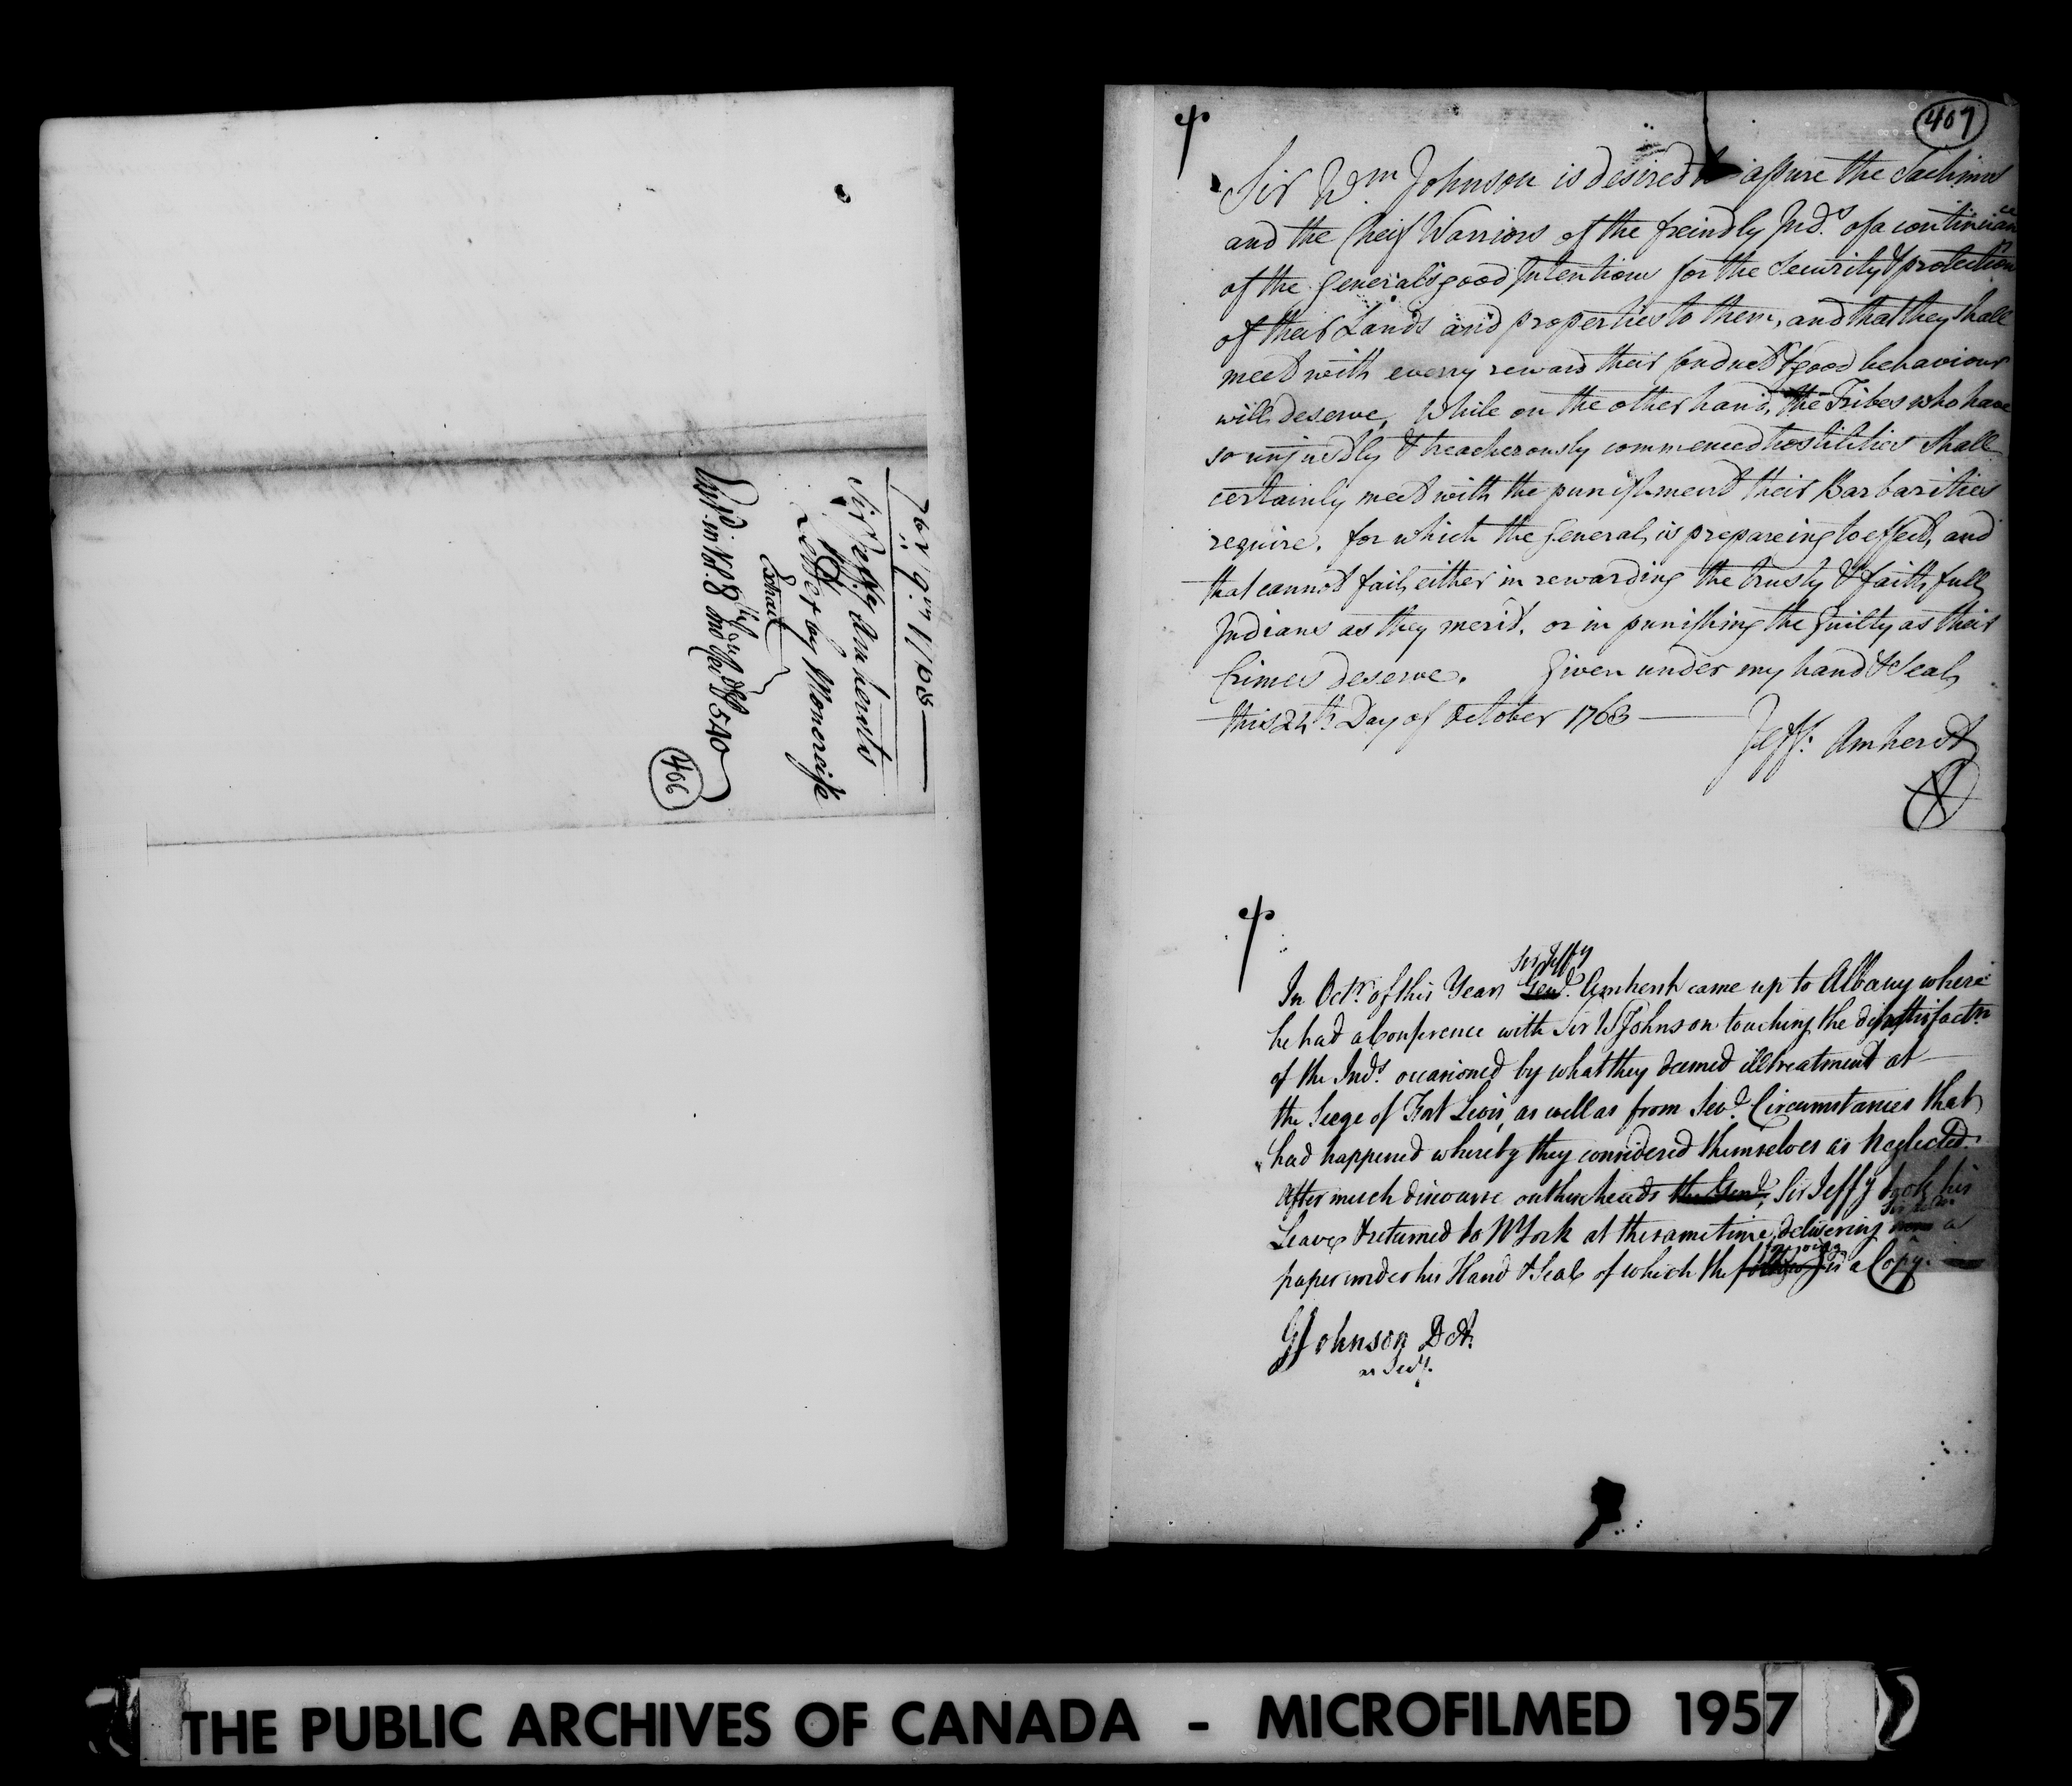 7br 9th 1763
Sir Jeffry Amhersts
Letter by Moncreiffe
Extract
in Vol. 8 540
406
407
Sir Wm Johnson is desired to assure the Sachims
and the Cheif Warriors of the freindly Inds. of a continuance
of the General's good Intentions for the Security & protection
of their Lands and properties to them, and that they shall
meet with every reward their Conduct & good behaviour
will deserve, While on the other hand, the Tribes who have
so unjustly & treacherously commenced hostilities shall
certainly meet with the punishment their Barbarities
require. for which the General, is prepareing to effect, and
that cannot fail, either in rewarding the trusty & faithfull
Indians as they merit. or in punishing the Guilty as their
Crimes deserve. Given under my hand & Seal,
this 24th. Day of October 1763
Jeff: Amherst
Sir Jeffy
In Octr. of this Year Genl. Amherst came up to Albany where
he had a Conference with Sir WJohnson touching the dissattisfactn
of the Inds. occasioned by what they deemed illtreatment at
the Seege of Fort Levis, as well as from Sevl. Circumstances that
had happened whereby they considered themselves as Neglected.
After much discourse on this heads the Genl. Sir Jeffy took his
Leave & returned to NYork at the same time delivering a
paper under his Hand & Seal of which the is a Copy.
GJohnson Dct.
as Secy.
THE PUBLIC ARCHIVES OF CANADA - MICROFILMED 1957